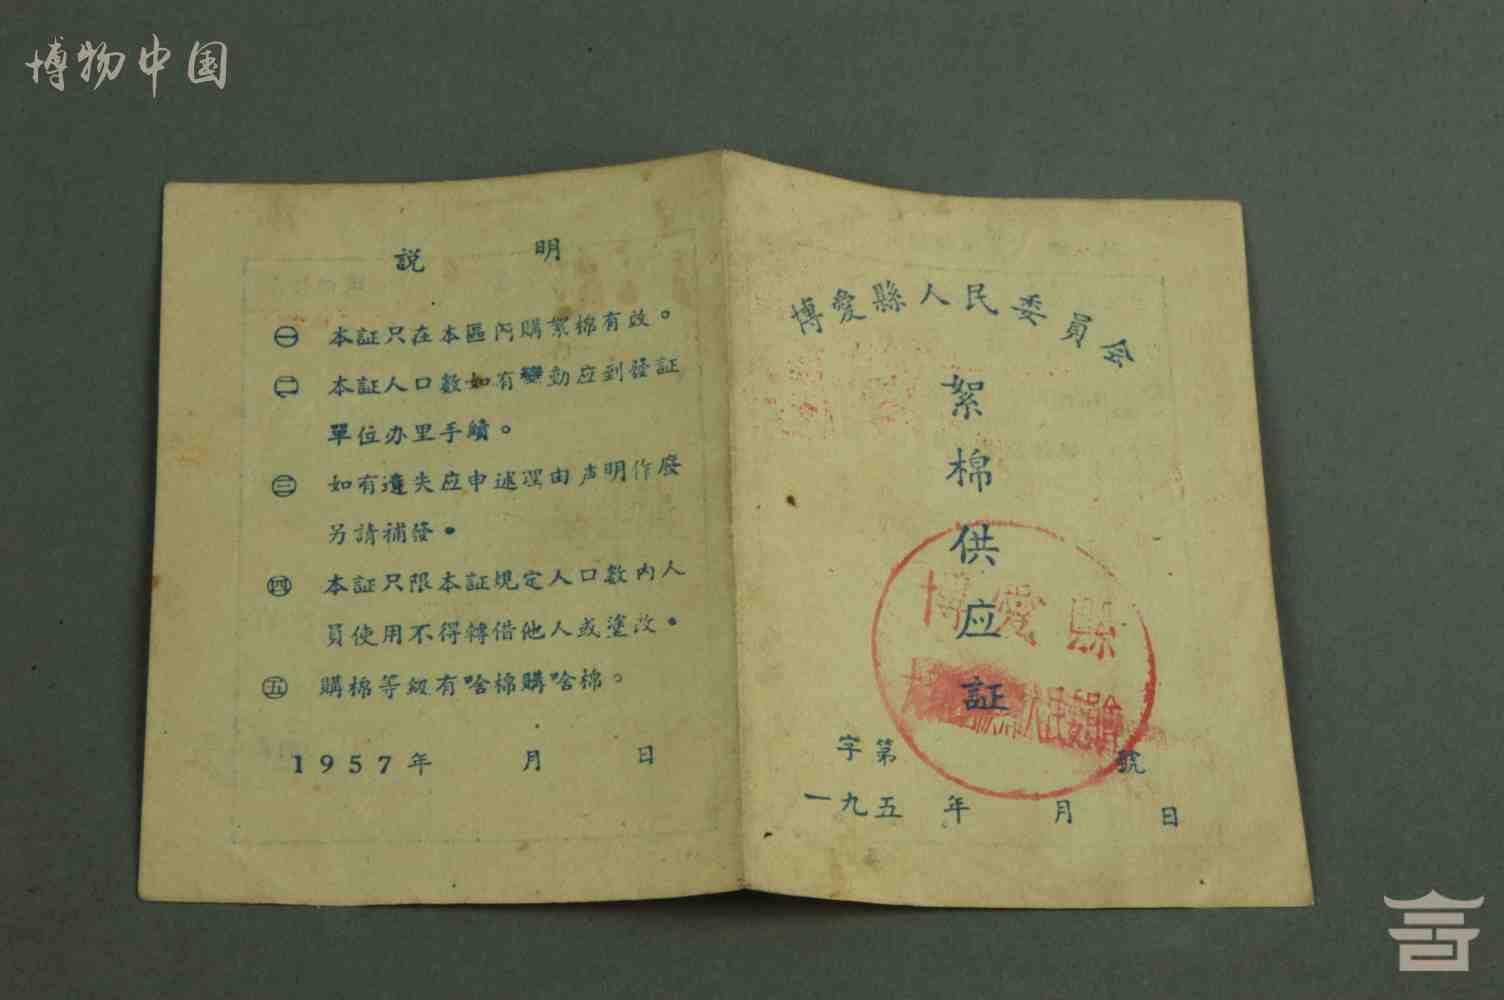 博物中国
説 明
㊀ 本証只在本區内購絮棉有效。
㊁ 本証人口数如有變動应到發証
單位办里手續。
㊂ 如有遺失应申述理由声明作廢
另請補發。
㊃ 本証只限本証規定人口数内人
員使用不得轉借他人或塗改。
㊄ 購棉等級有啥棉購啥棉。
1957年 月 日
博愛縣人民委員会
絮
棉
供
应
証
博愛縣
人民委員會
字第 號
一九五 年 月 日